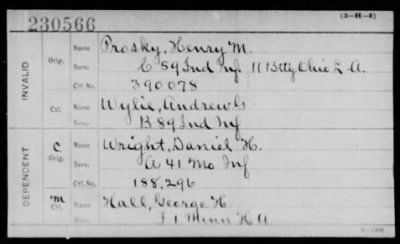 (3-H-4)
230566
INVALID
Orig.
Name
Prosky, Henry M.
Serv.
C 89 Ind Inf. 11 Btty Ohio L A.
Ctf. No.
390078
Ctf.
Name
Wylie, Andrew G
Serv.
B 89 Ind Inf
DEPENDENT
C
Orig.
Name
Wright, Daniel H.
Serv.
A 41 Mo Inf
Ctf. No.
188,296
"M
Ctf.
Name
Hall, George H
Serv.
F 1 Minn H A